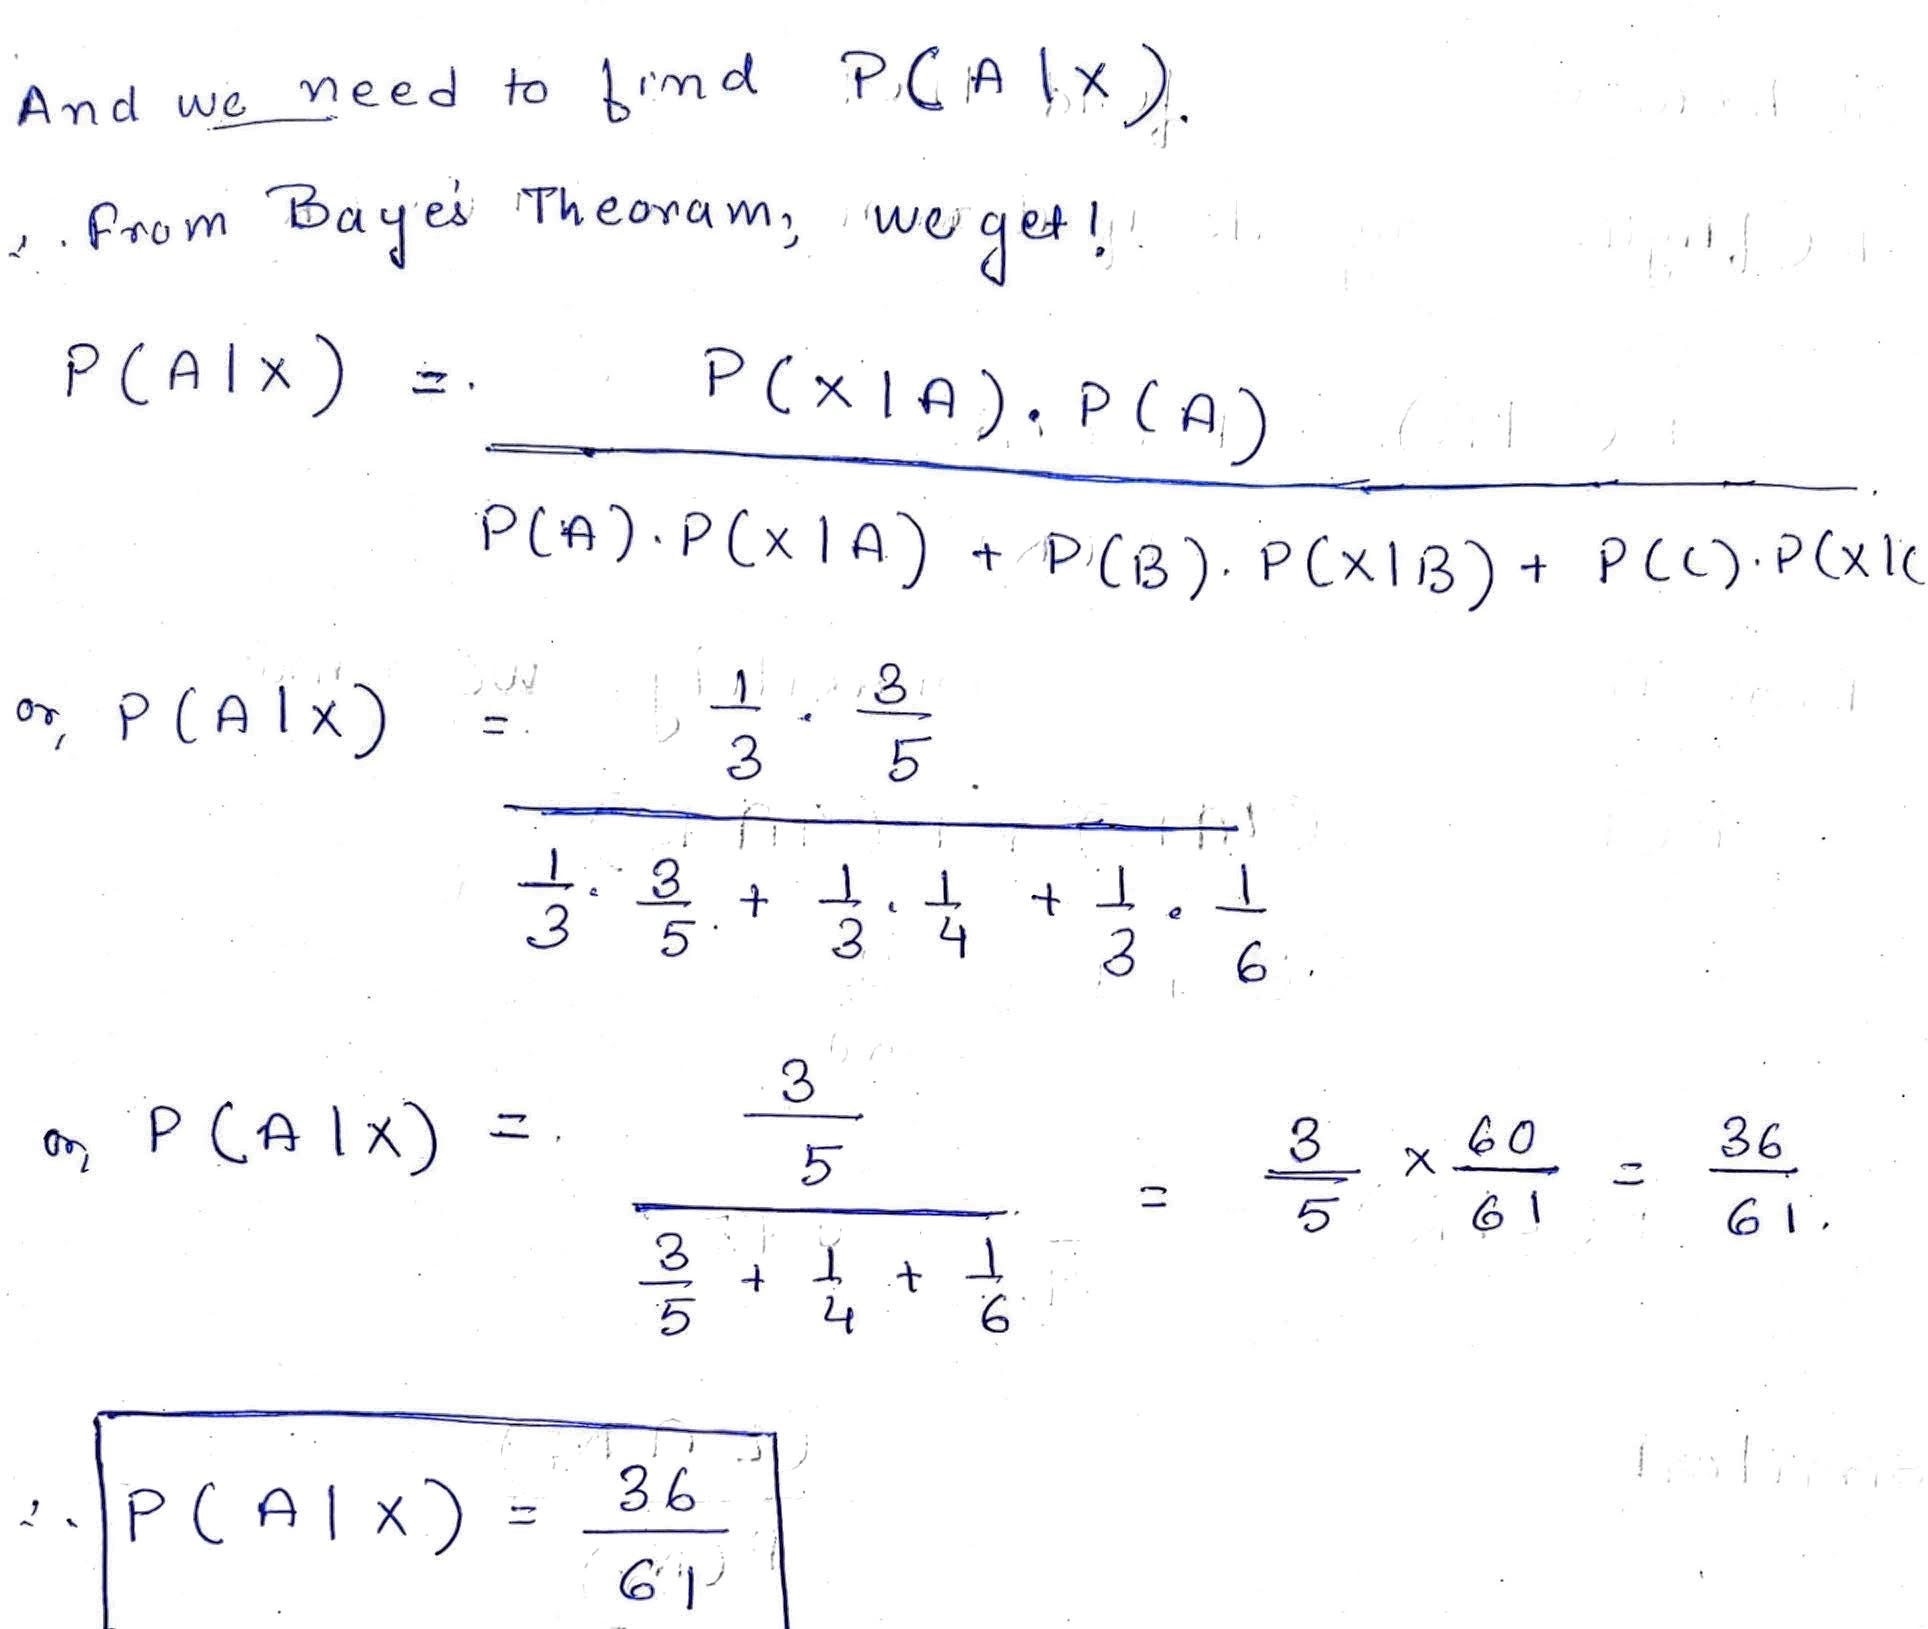 And we need to find P(A|X).
∴ From Baye's Theoram, we get!
P(A|X) = P(X|A). P(A)
P(A).P(X|A) + P(B). P(X|B) + P(C).P(X|C
or, P(A|X) = 1/3 . 3/5
1/3 . 3/5 + 1/3 . 1/4 + 1/3 . 1/6
or, P(A|X) = 3/5 / 3/5 + 1/4 + 1/6 = 3/5 × 60/61 = 36/61.
∴ P(A|X) = 36/61